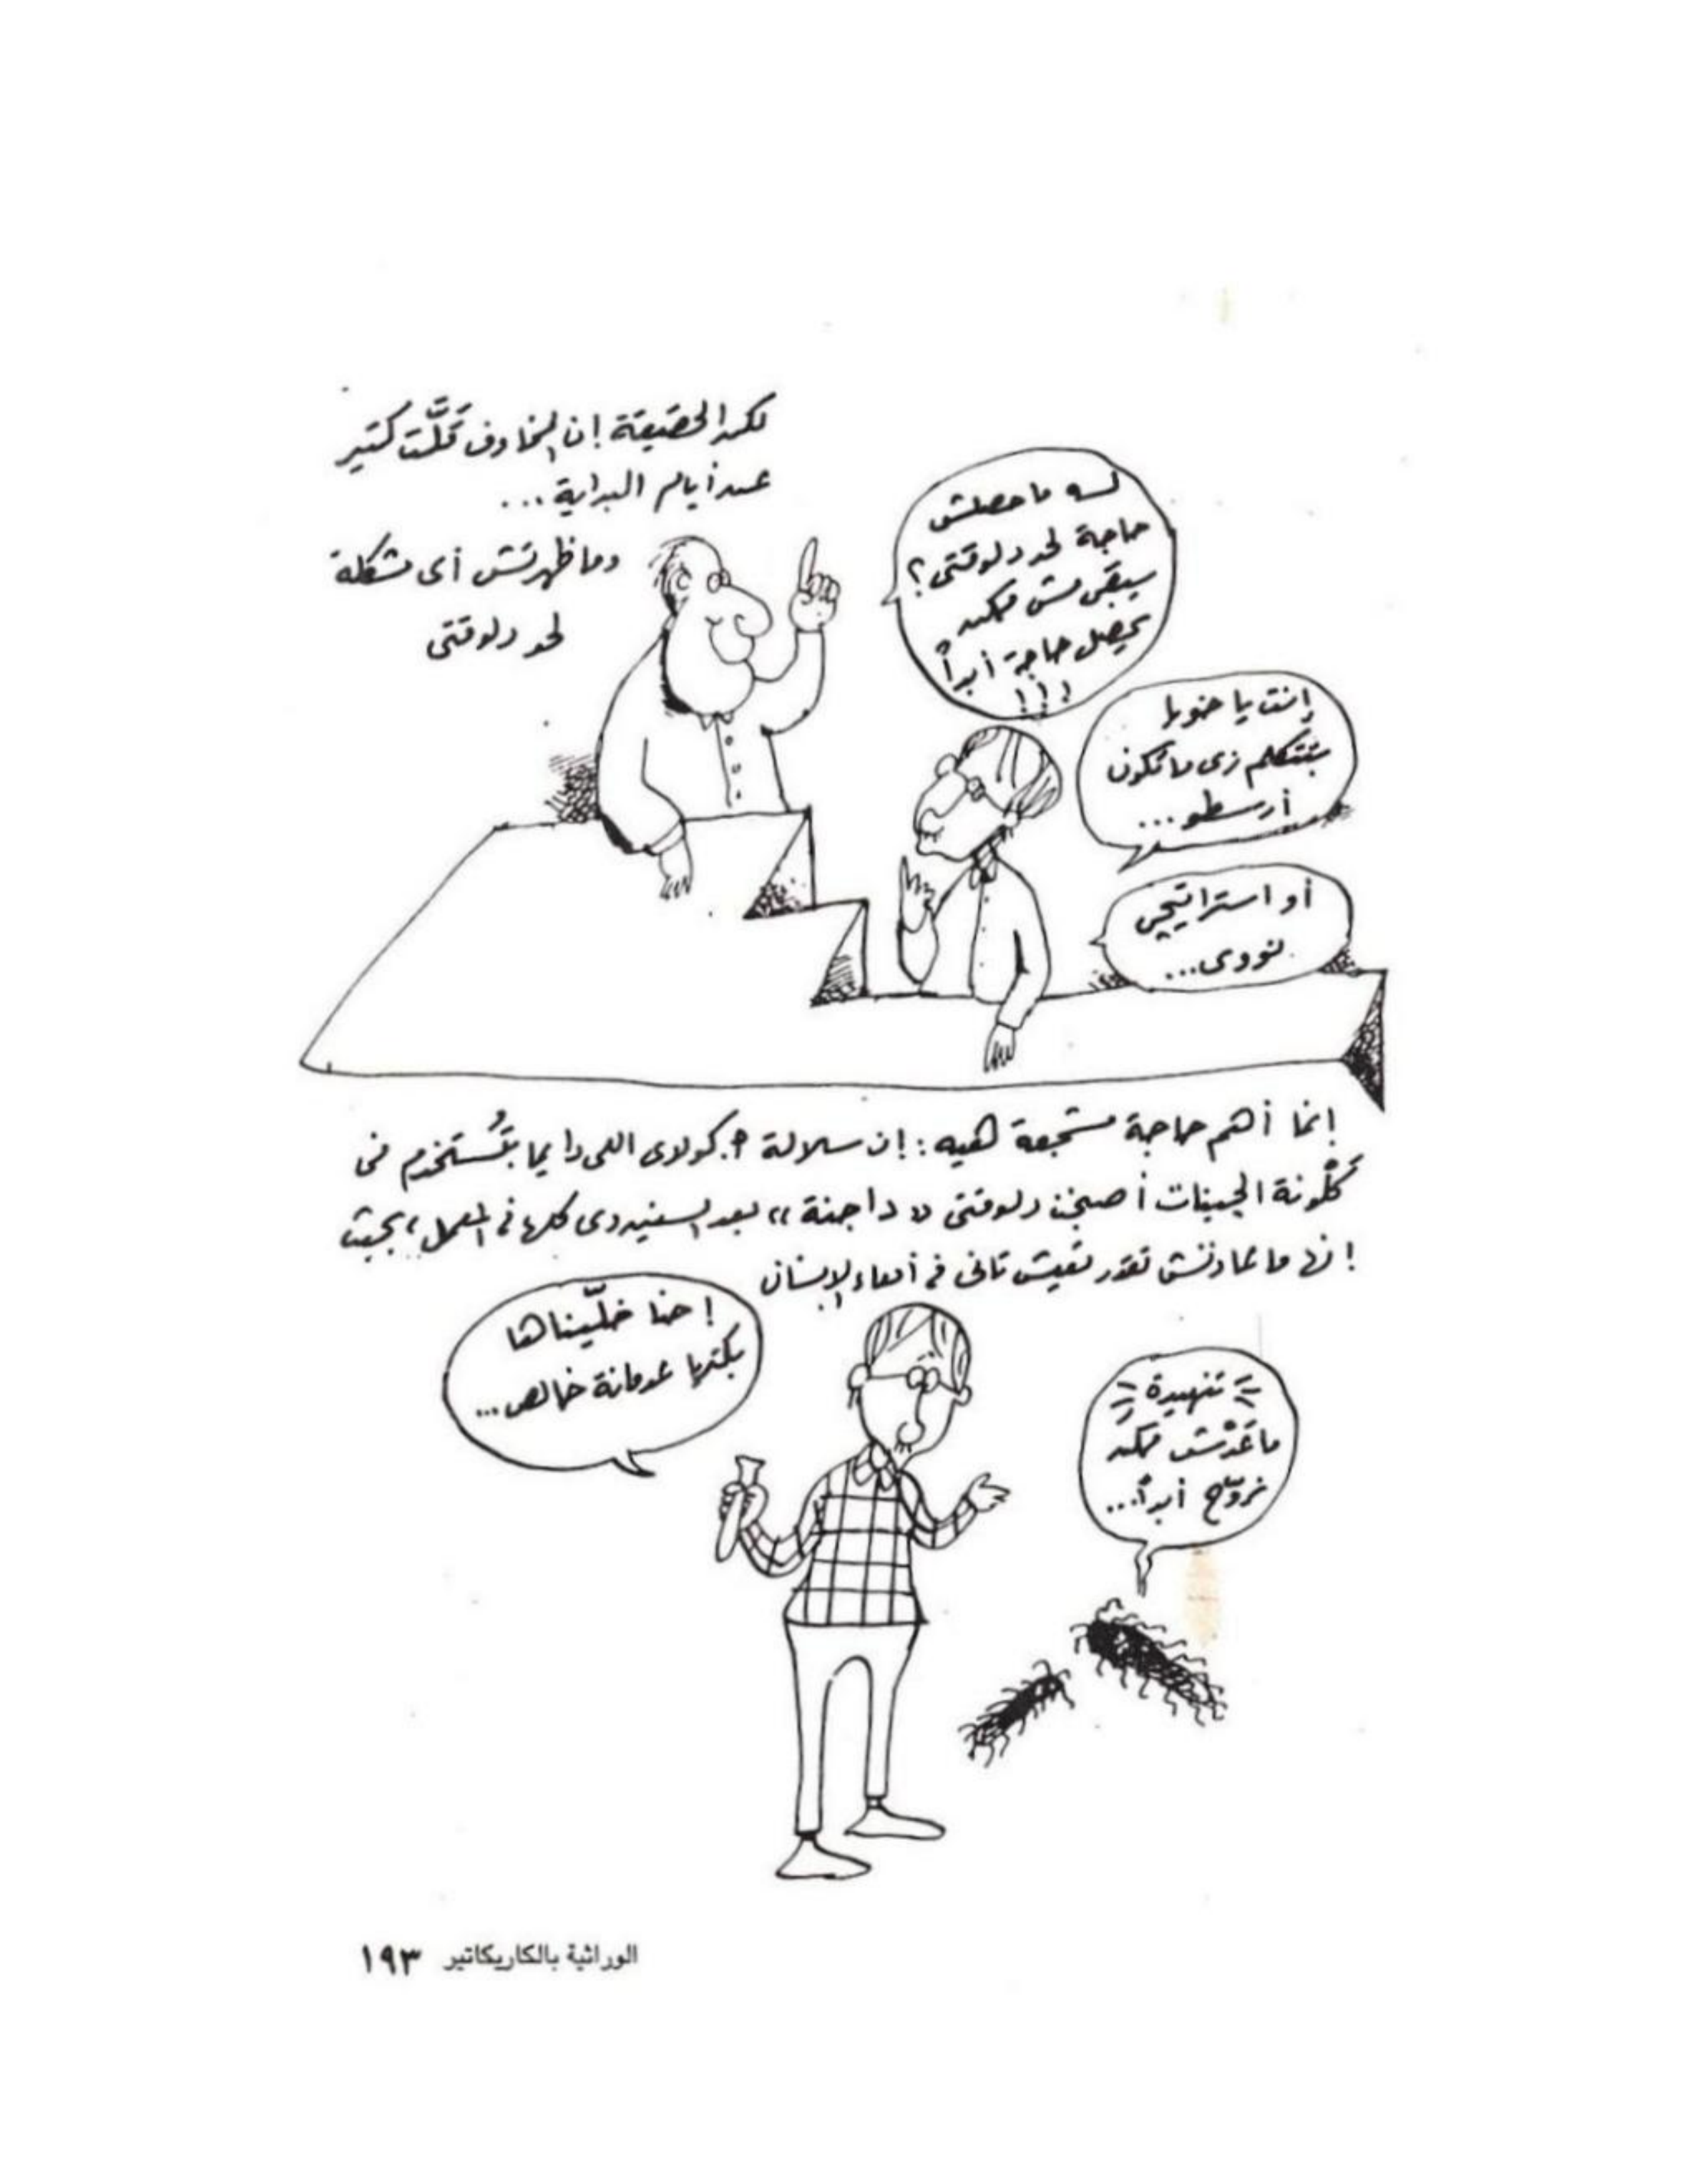 لكن الحقيقة إن المخاوف قَلَّت كتير
عن أيام البداية...
وما ظهرتش أى مشكلة
لحد دلوقتى
لسه ما حصلش
حاجة لحد دلوقتى؟
يبقى مش ممكن
يحصل حاجة أبداً
!!!
إنت يا خويا
بتتكلم زى ما تكون
أرسطو...
أو استراتيجى
نووى...
إنما أهم حاجة مشجعة هيه: إن سلالة إ. كولاى اللى دايما بتُستخدم فى
كَلْونة الجينات أصبحت دلوقتى «داجنة» بعد السنين دى كلها فى المعمل، بحيث
إنها ما عادتش تقدر تعيش تانى فى أمعاء الإنسان
إحنا خلّيناها
بكتريا عدمانة خالص...
= تنهيدة =
ما عَدْش ممكن
نروّح أبداً...
الوراثية بالكاريكاتير ١٩٣